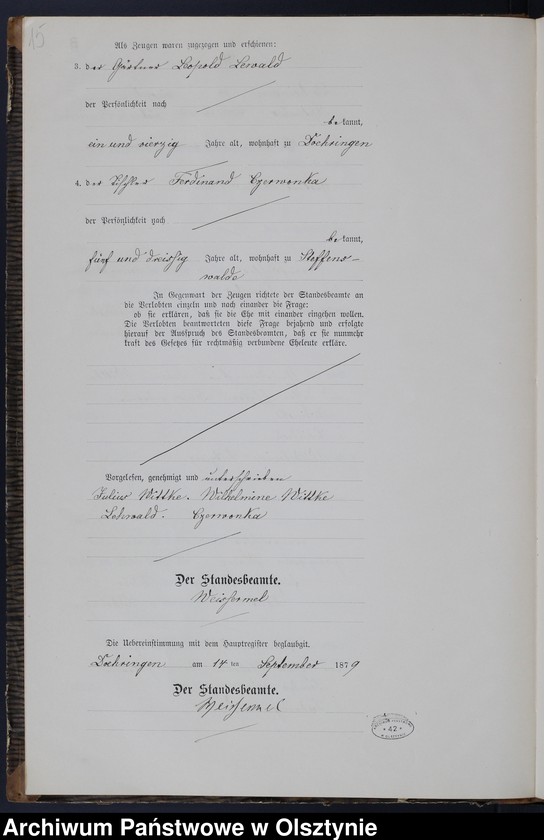 15
Als Zeugen waren zugezogen und erschienen:
3. der Gärtner Leopold Lewald
der Persönlichkeit nach
bekannt,
ein und vierzig Jahre alt, wohnhaft zu Doehringen
4. der Tischler Ferdinand Czerwonka
der Persönlichkeit nach
bekannt,
fünf und dreissig Jahre alt, wohnhaft zu Steffens-
walde
In Gegenwart der Zeugen richtete der Standesbeamte an
die Verlobten einzeln und nach einander die Frage:
ob sie erklären, daß sie die Ehe mit einander eingehen wollen.
Die Verlobten beantworteten diese Frage bejahend und erfolgte
hierauf der Ausspruch des Standesbeamten, daß er sie nunmehr
kraft des Gesetzes für rechtmäßig verbundene Eheleute erkläre.
Vorgelesen, genehmigt und unterschrieben
Julius Wittke. Wilhelmine Wittke
Lehwald. Czerwonka
Der Standesbeamte.
Weissermel
Die Uebereinstimmung mit dem Hauptregister beglaubigt.
Doehringen am 14 ten September 1879
Der Standesbeamte.
Weissermel
42
Archiwum Państwowe w Olsztynie